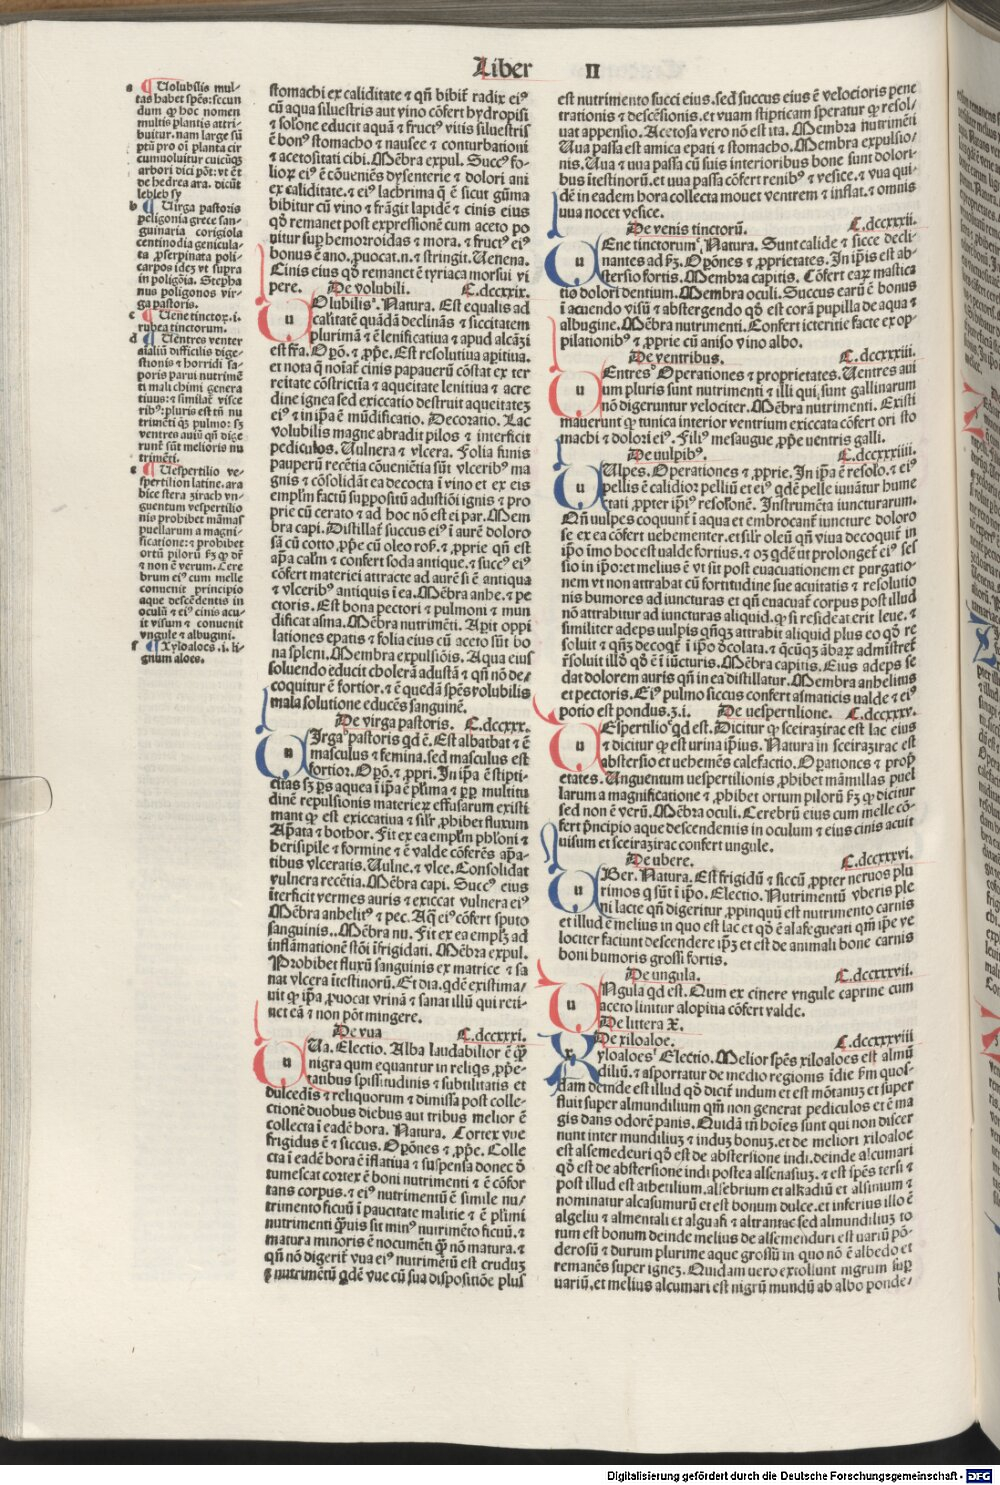 Liber II
a ¶ Uolubilis mul-
tas habet spēs: secun
dum qȝ hoc nomen
multis plantis attri-
buitur. nam large sū
ptū pro oī planta cir
cumuoluitur cuicūqȝ
arbori dici pōt: vt ē t
de hedera ara. dicūt
lebleb sy
b ¶ Uirga pastoris
peligonia grece san-
guinaria corigiola
centinodia genicula-
ta pserpinata poli-
carpos idez vt supra
in poligōia. Stepha
nus poligonos vir-
ga pastoris.
c ¶ Uene tinctoꝝ .i.
rubea tinctorum.
d ¶ Uentres venter
aīaliū difficilis dige-
stionis ⁊ horridi sa-
poris parui nutrimē
ti mali chimi genera
tiuus: ⁊ similat̄ visce
ribꝰ: pluris est tn̄ nu
trimēti qȝ pulmo: sȝ
ventres auiū qn̄ dige
runt̄ sūt melioris nu
trimēti.
e ¶ Uespertilio ve-
spertilion latine. ara
bice stera zirach vn-
guentum vespertilio
nis prohibet māmas
puellarum a magni-
ficatione: ⁊ prohibet
ortū pilorū ƀȝ qȝ dr̄
⁊ non ē verum. Cere
brum eiꝰ cum melle
conuenit principio
aque descēdentis in
oculū ⁊ eiꝰ cinis acu-
it visum ⁊ conuenit
vngule ⁊ albugini.
f ¶ Xyloaloes .i. li-
gnum aloes.
stomachi ex caliditate ⁊ qn̄ bibit̄ radix eiꝰ
cū aqua siluestris aut vino cōfert hydropisi
⁊ solōne educit aquā ⁊ fructꝰ vitis siluestris
ē bonꝰ stomacho ⁊ nausee ⁊ conturbationi
⁊ acetositati cibi. Mēbra expul. Succꝰ fo-
lioꝝ eiꝰ ē cōueniēs dysenterie ⁊ dolori ani
ex caliditate. ⁊ eiꝰ lachrima q̄ ē sicut gūma
bibitur cū vino ⁊ frāgit lapidē ⁊ cinis eius
qd̄ remanet post expressionē cum aceto po
nitur sup hemorroidas ⁊ mora. ⁊ fructꝰ eiꝰ
bonus ē ano. puocat .n. ⁊ stringit. Uenena.
Cinis eius qd̄ remanet ē tyriaca morsui vi
pere. De volubili. C. dccxxix.
Uolubilis. Natura. Est equalis ad
calitatē quādā declinās ⁊ siccitatem
plurimā ⁊ ē lenificatiua ⁊ apud alcāzi
est fra. Opō. ⁊ ppe. Est resolutiua apitiua.
et nota q̄ noīat̄ cinis papauerū cōstat ex ter
reitate cōstrictiā ⁊ aqueitate lenitiua ⁊ acre
dine ignea sed exiccatio destruit aqueitatez
eiꝰ ⁊ in ipsa ē mūdificatio. Decoratio. Lac
volubilis magne abradit pilos ⁊ interficit
pediculos. Uulnera ⁊ vlcera. Folia funis
pauperū recētia cōuenientia sūt vlceribꝰ ma
gnis ⁊ cōsolidāt ea decocta ī vino et ex eis
emplm̄ factū suppositū adustiōi ignis ⁊ pro
prie cū cerato ⁊ ad hoc nō est ei par. Mem
bra capi. Distillat̄ succus eiꝰ ī aurē doloro
sā cū cotto. ppe cū oleo roſ. ⁊ pprie qn̄ est
apsa calm̄ ⁊ confert soda antique. ⁊ succꝰ eiꝰ
cōfert materiei attracte ad aurē si ē antiqua
⁊ vlceribꝰ antiquis ī ea. Mēbra anhe. ⁊ pe
ctoris. Est bona pectori ⁊ pulmoni ⁊ mun
dificat asma. Mēbra nutrimēti. Apit oppi
lationes epatis ⁊ folia eius cū aceto sūt bo
na spleni. Membra expulsiōis. Aqua eius
soluendo educit cholerā adustā ⁊ qn̄ nō de-
coquitur ē fortior. ⁊ ē quedā spēs volubilis
mala solutione educēs sanguinē.
De virga pastoris. C. dccxxx.
Uirga pastoris qd̄ ē. Est albatbat ⁊ ē
masculus ⁊ femina. sed masculus est
fortior. Opō. ⁊ ppri. In ipsa ē stipti-
citas sȝ ps aquea ī ipsa ē pluma ⁊ pp multitu
dinē repulsionis materiez effusarum existi
mant qȝ est exiccatiua ⁊ silr̄ phibet fluxum
Apata ⁊ bothor. Fit ex ea emplm̄ phlōni ⁊
herisipile ⁊ formine ⁊ ē valde cōferēs apa-
tibus vlceratis. Uulne. ⁊ vlce. Consolidat
vulnera recētia. Mēbra capi. Succꝰ eius
īterficit vermes auris ⁊ exiccat vulnera eiꝰ
Mēbra anhelitꝰ ⁊ pec. Aq̄ eiꝰ cōfert sputo
sanguinis.. Mēbra nu. Fit ex ea emplȝ ad
inflāmationē stōi īfrigidati. Mēbra expul.
Prohibet fluxū sanguinis ex matrice ⁊ sa
nat vlcera ītestinorū. Et dia. qdē existima/
uit qȝ ipsa puocat vrinā ⁊ sanat illū qui reti-
net eā ⁊ non pōt mingere.
De vua C. dccxxxi.
Ua. Electio. Alba laudabilior ē qȝ
nigra qum equantur in reliqs. ppe-
tatibus spissitudinis ⁊ subtilitatis et
dulcedīs ⁊ reliquorum ⁊ dimissa post colle-
ctionē duobus diebus aut tribus melior ē
collecta ī eadē hora. Natura. Cortex vue
frigidus ē ⁊ siccus. Opōnes ⁊ ppe. Colle
cta ī eadē hora ē īflatiua ⁊ suspensa donec d
tumescat cortex ē boni nutrimenti ⁊ ē cōfor
tans corpus. ⁊ eiꝰ nutrimentū ē simile nu/
trimento ficuū ī paucitate malitie ⁊ ē plimi
nutrimenti quis sit minꝰ nutrimēto ficuū. ⁊
matura minoris ē nocumēti qȝ nō matura. ⁊
qn̄ nō digerit̄ vua eiꝰ nutrimētū est cruduȝ
⁊ nutrimētū qdē vue cū sua dispositiōe plus
est nutrimento succi eius. sed succus eius ē velocioris pene
trationis ⁊ descēsionis. et vuam stipticam speratur qȝ resol/
uat appensio. Acetosa vero nō est ita. Membra nutrimēti
Uua passa est amica epati ⁊ stomacho. Membra expulsio/
nis. Uua ⁊ uua passa cū suis interioribus bone sunt dolori-
bus ītestinorū. et uua passa cōfert renibꝰ ⁊ vesice. ⁊ vua qui-
dē in eadem hora collecta mouet ventrem ⁊ inflat. ⁊ omnis
uua nocet vesice.
De venis tinctorū. C. dccxxxii.
Uene tinctorum. Natura. Sunt calide ⁊ sicce decli-
nantes ad ƀȝ. Opōnes ⁊ pprietates. In ipsis est ab-
stersio fortis. Membra capitis. Cōfert earȝ mastica
tio dolori dentium. Membra oculi. Succus earū ē bonus
ī acuendo visū ⁊ abstergendo qd̄ est corā pupilla de aqua ⁊
albugine. Mēbra nutrimenti. Confert icteritie facte ex op-
pilationibꝰ ⁊ pprie cū aniso vino albo.
De ventribus. C. dccxxxiii.
Uentres Operationes ⁊ proprietates. Uentres aui
um pluris sunt nutrimenti ⁊ illi qui sunt gallinarum
nō digeruntur velociter. Mēbra nutrimenti. Existi
mauerunt qȝ tunica interior ventrium exiccata cōfert ori sto
machi ⁊ dolori eiꝰ. Filꝰ mesaugue ppe uentris galli.
De uulpibꝰ. C. dccxxxiiii.
Uulpes. Operationes ⁊ pprie. In ipsa ē resolo. ⁊ eiꝰ
pellis ē calidior pelliū et eiꝰ qdē pelle iuuātur hume
ctati ppter ipsiꝰ resolōnē. Instrumēta iuncturarum.
Qn̄ uulpes coquunt̄ ī aqua et embrocant̄ iuncture doloro
se ex ea cōfert uehementer. et silr̄ oleū qn̄ viua decoquit̄ in
ipso īmo hoc est valde fortius. ⁊ oȝ qdē ut prolonget̄ eiꝰ ses
sio in ipso: et melius ē vt sit post euacuationem et purgatio-
nem vt non attrahat cū fortitudine sue acuitatis ⁊ resolutio
nis humores ad iuncturas et qn̄ euacuat̄ corpus post illud
nō attrahitur ad iuncturas aliquid. qȝ si resideat erit leue. ⁊
similiter adeps uulpis qn̄qȝ attrabit aliquid plus eo qd̄ re
soluit ⁊ qn̄ȝ decoqt̄ ī ipso dcolata. ⁊ qcūqȝ ābarȝ admstret̄
r̄soluit illd̄ qd̄ ē ī iūcturis. Mēbra capitis. Eius adeps se
dat dolorem auris qn̄ in ea distillatur. Membra anhelitus
et pectoris. Eiꝰ pulmo siccus confert asmaticis valde ⁊ eiꝰ
potio est pondus .ȝ.i. De uespertilione. C. dccxxxv.
Uespertilio qd̄ est. Dicitur qȝ sceirazirac est lac eius
⁊ dicitur qȝ est urina ipsius. Natura in sceirazirac est
abstersio et uehemēs calefactio. Opationes ⁊ propri
etates. Unguentum uespertilionis phibet māmillas puel
larum a magnificatione ⁊ phibet ortum pilorū ƀȝ qȝ dicitur
sed non ē verū. Mēbra oculi. Cerebrū eius cum melle cō-
fert pncipio aque descendentis in oculum ⁊ eius cinis acuit
uisum et sceirazirac confert ungule.
De ubere. C. dccxxxvi.
Uber. Natura. Est frigidū ⁊ siccū ppter neruos plu
rimos q̄ sūt ī ipso. Electio. Nutrimentū vberis ple
ni lacte qn̄ digeritur ppinquū est nutrimento carnis
et illud ē melius in quo est lac et qd̄ ē alafegueati qm̄ ipse ve
lociter faciunt descendere ipsȝ et est de animali bone carnis
boni humoris grossi fortis.
De ungula. C. dccxxxvii.
Ungula qd̄ est. Qum ex cinere vngule caprine cum
aceto linitur alopitia cōfert valde.
De littera X.
De xiloaloe. C. dccxxxviii
Xyloaloes Electio. Melior spēs xiloaloes est almū
diliū. ⁊ asportatur de medio regionis īdie ƀm quos-
dam deinde est illud qd̄ dicit̄ indum et est mōtanuȝ et super
fluit super almundilium qm̄ non generat pediculos et ē ma
gis dans odorē panis. Quidā tn̄ hoīes sunt qui non discer
nunt inter mundiliuȝ ⁊ induȝ bonuȝ. et de meliori xiloaloe
est alsemedeuri qd̄ est de abstersione indi. deinde alcumari
qd̄ est de abstersione indi postea alsenasiuȝ. ⁊ est spēs tersi ⁊
post illud est athetilium. alsebrium et alkadiū et alsinium ⁊
nominatur alcasumurū et est bonum dulce. et inferius illo ē
algeliu ⁊ almentali et alguafi ⁊ altrantac sed almundiliuȝ to
tum est bonum deinde melius de alsemenduri est uariū pō-
derosū ⁊ durum plurime aque grossū in quo nō ē albedo et
remanēs super igneȝ. Quidam uero extollunt nigrum supr
uariū. et melius alcumari est nigrū mundū ab albo ponde/
Digitalisierung gefördert durch die Deutsche Forschungsgemeinschaft - DFG